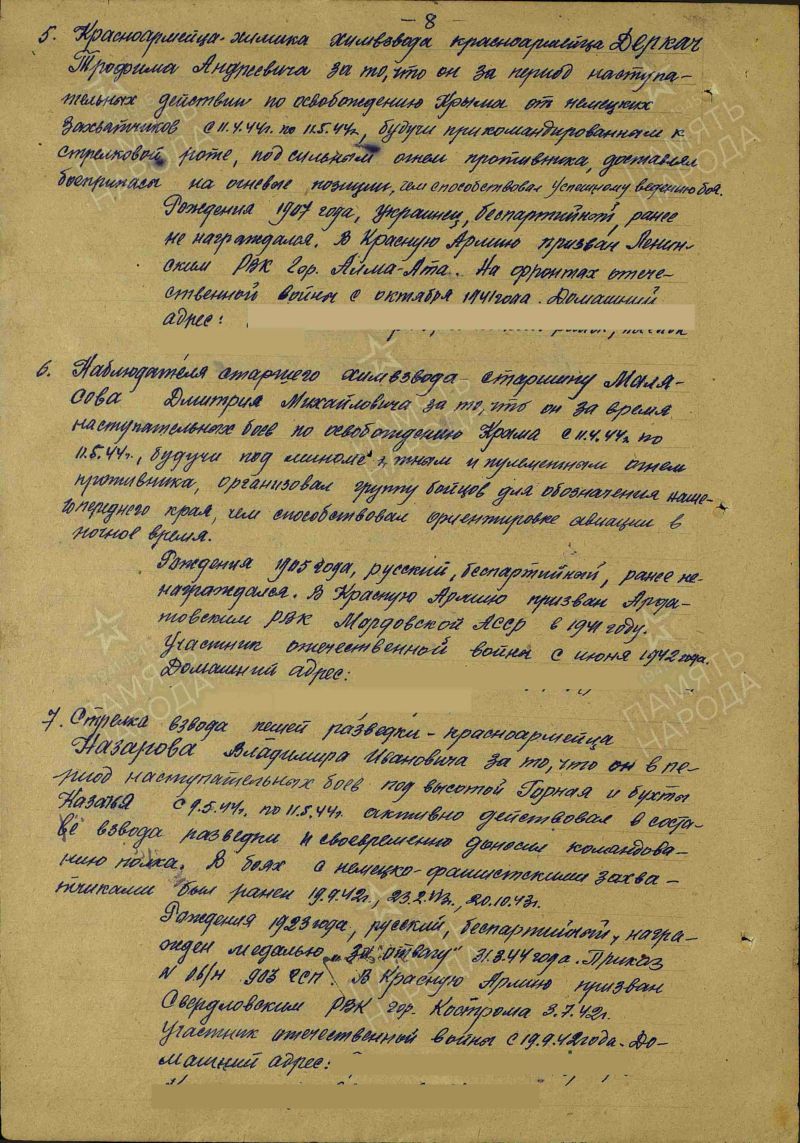 - 8 -
5. Красноармейца-химика химвзвода красноармейца Деркач
Трофима Андреевича за то, что он за период наступа-
тельных действий по освобождению Крыма от немецких
захватчиков с 11.4.44г. по 11.5.44г., будучи прикомандированным к
стрелковой роте, под сильным огнем противника, доставлял
боеприпасы на огневые позиции, чем способствовал успешному ведению боя.
Рождения 1907 года, украинец, беспартийный, ранее
не награждался. В Красную Армию призван Ленин-
ским РВК гор. Алма-Ата. На фронтах отече-
ственной войны с октября 1941 года. Домашний
адрес:
6. Наблюдателя старшего химвзвода - старшину Маля-
сова Дмитрия Михайловича за то, что он за время
наступательных боев по освобождению Крыма с 11.4.44г. по
11.5.44г., будучи под минометным и пулеметным огнем
противника, организовал группу бойцов для обозначения наше-
го переднего края, чем способствовал ориентировке авиации в
ночное время.
Рождения 1905 года, русский, беспартийный, ранее не-
награждался. В Красную Армию призван Арда-
товским РВК Мордовской АССР в 1941 году.
Участник отечественной войны с июня 1942 года.
Домашний адрес:
7. Стрелка взвода пешей разведки - красноармейца
Назарова Владимира Ивановича за то, что он в пе-
риод наступательных боев под высотой Горная и бухты
Казачья с 9.5.44г. по 11.5.44г. активно действовал в соста-
ве взвода разведки и своевременно доносил командова-
нию полка. В боях с немецко-фашистскими захва-
тчиками был ранен 19.9.42г., 23.2.43г., 20.10.43г.
Рождения 1923 года, русский, беспартийный, награ-
жден медалью "За отвагу" 31.3.44 года. Приказ
N 06/н 903 ГСП. В Красную Армию призван
Свердловским РВК гор. Кострома 3.7.42г.
Участник отечественной войны с 19.9.42 года. До-
машний адрес:
ПАМЯТЬ
НАРОДА